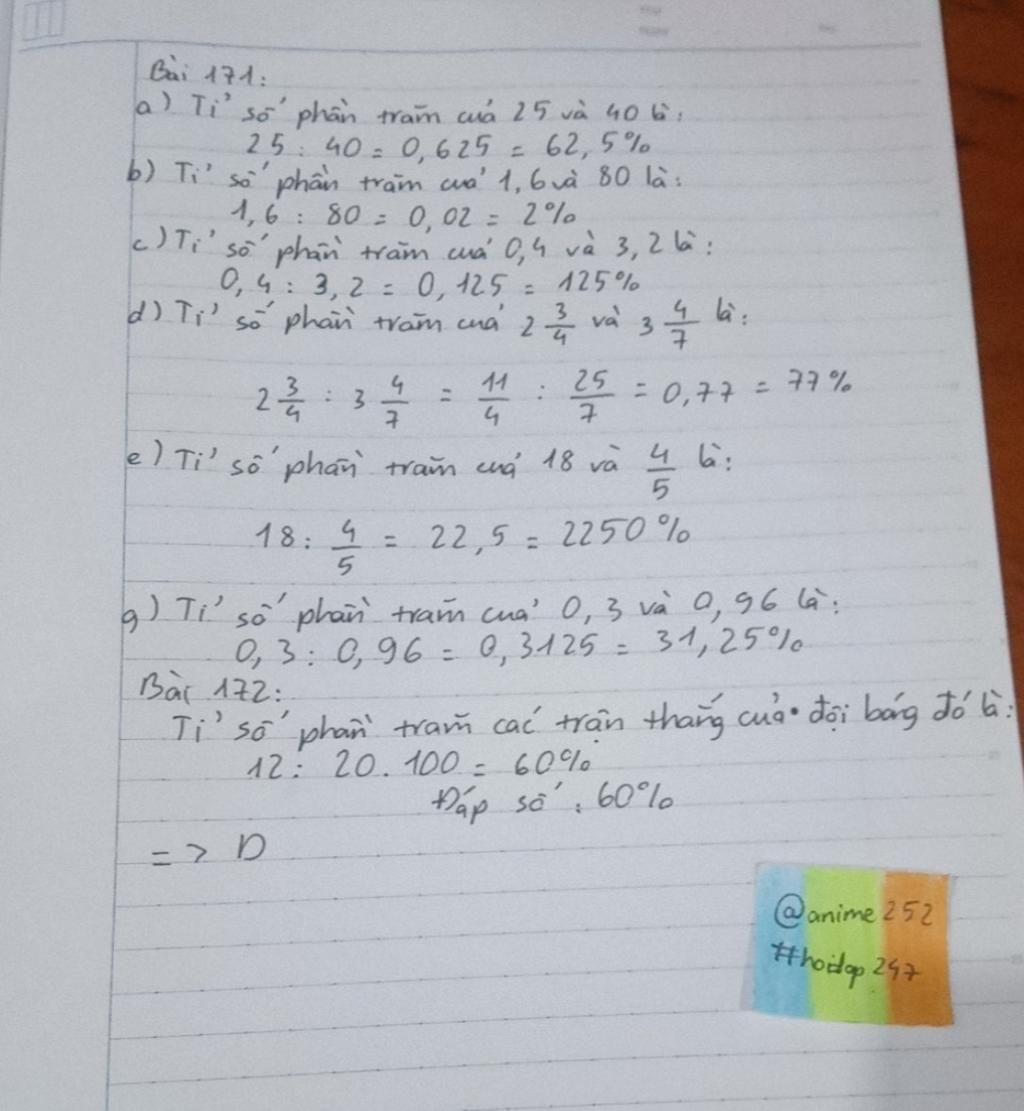 Bài 171:
a) Tỉ số phần trăm của 25 và 40 là:
25 : 40 = 0,625 = 62,5%
b) Tỉ số phần trăm của 1,6 và 80 là:
1,6 : 80 = 0,02 = 2%
c) Tỉ số phần trăm của 0,4 và 3,2 là:
0,4 : 3,2 = 0,125 = 125%
d) Tỉ số phần trăm của 2 3/4 và 3 4/7 là:
2 3/4 : 3 4/7 = 11/4 : 25/7 = 0,77 = 77%
e) Tỉ số phần trăm của 18 và 4/5 là:
18 : 4/5 = 22,5 = 2250%
g) Tỉ số phần trăm của 0,3 và 0,96 là:
0,3 : 0,96 = 0,3125 = 31,25%
Bài 172:
Tỉ số phần trăm các trận thắng của đội bóng đó là:
12 : 20 . 100 = 60%
Đáp số : 60%
=> D
@anime252
#hoidap247